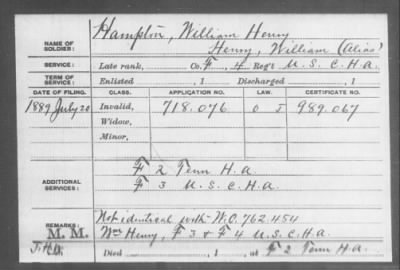 Hampton, William Henry
NAME OF SOLDIER: Henry, William (Alias)
SERVICE: Late rank, Co. F, 4 Reg't U.S.C.H.A.
TERM OF SERVICE: Enlisted , 1 Discharged , 1
DATE OF FILING. CLASS. APPLICATION NO. LAW. CERTIFICATE NO.
1889 July 20 Invalid, 718.076 989.067
Widow,
Minor,
ADDITIONAL SERVICES: F 2 Tenn H.A.
F 3 U.S.C.H.A.
REMARKS: Not identical with W.O. 762.454
M. M. Wm Henry, F 3 & F 4 U.S.C.H.A.
Died , 1 , at F 2 Tenn H.A.